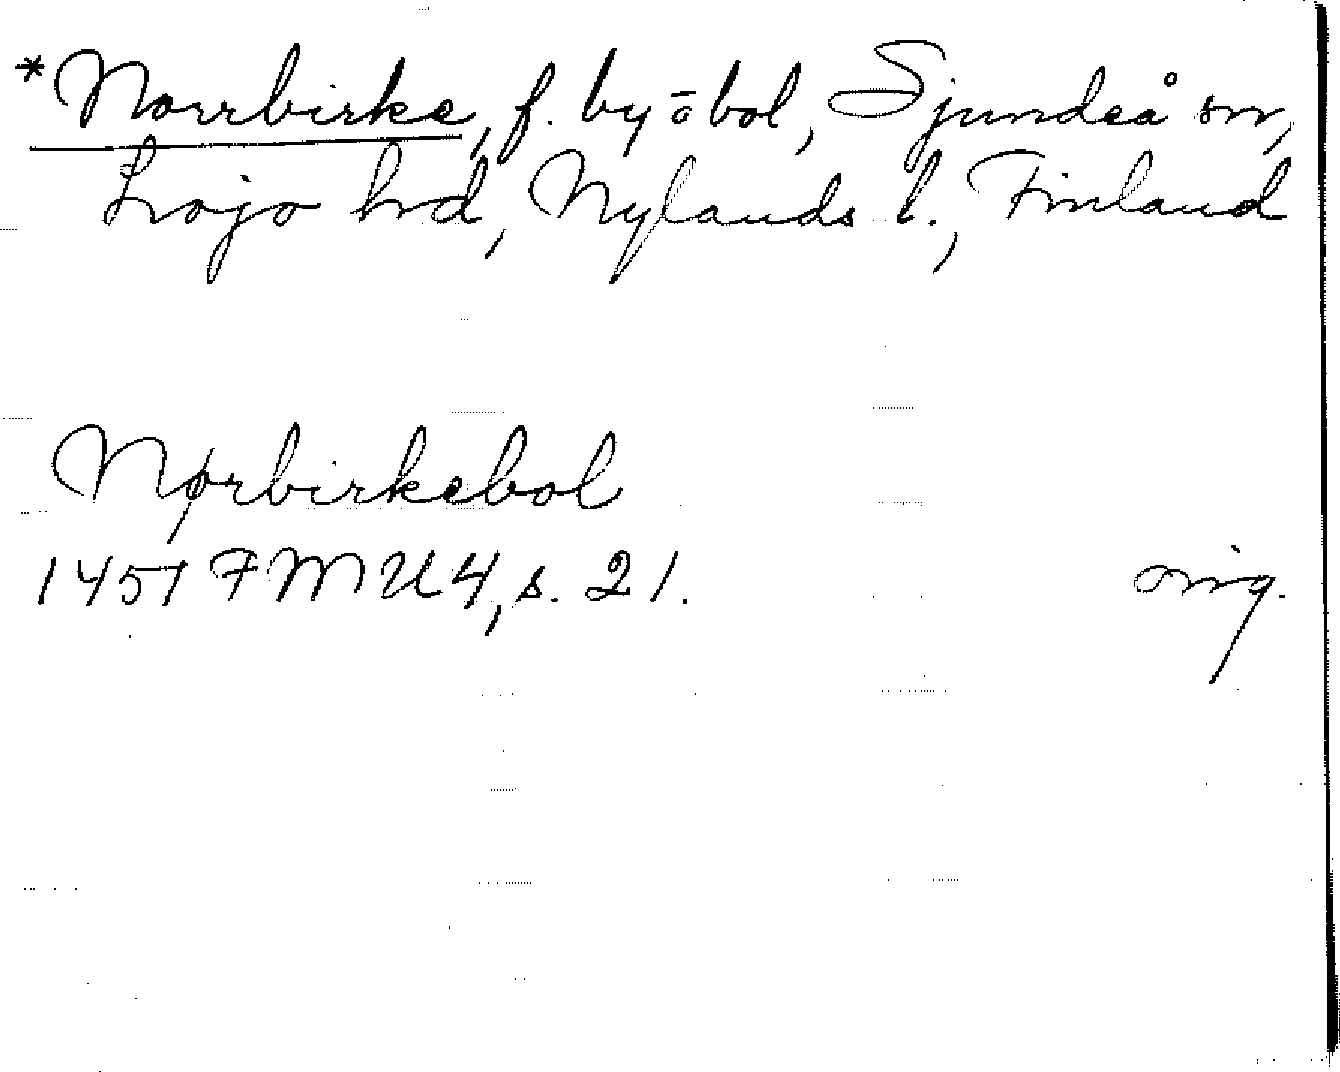 *Norrbirke, f. by å bol, Sjundeå sn,
Lojo hrd, Nylands l., Finland
Nørbirkebol
1451 FMU4, s. 21. orig.